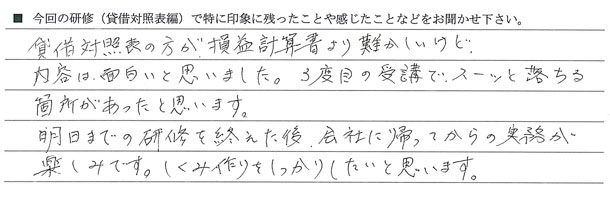 ■ 今回の研修(貸借対照表編)で特に印象に残ったことや感じたことなどをお聞かせ下さい。
貸借対照表の方が、損益計算書より難かしいけど、
内容は面白いと思いました。3度目の受講で、スーッと落ちる
箇所があったと思います。
明日までの研修を終えた後、会社に帰ってからの実務が
楽しみです。しくみ作りをしっかりしたいと思います。